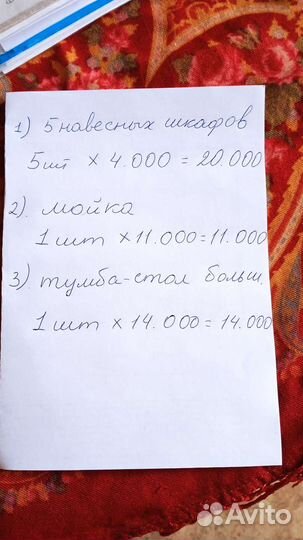 1) 5 навесных шкафов
5 шт х 4.000 = 20.000
2) мойка
1 шт х 11.000 = 11.000
3) тумба-стол больш.
1 шт х 14.000 = 14.000
Avito